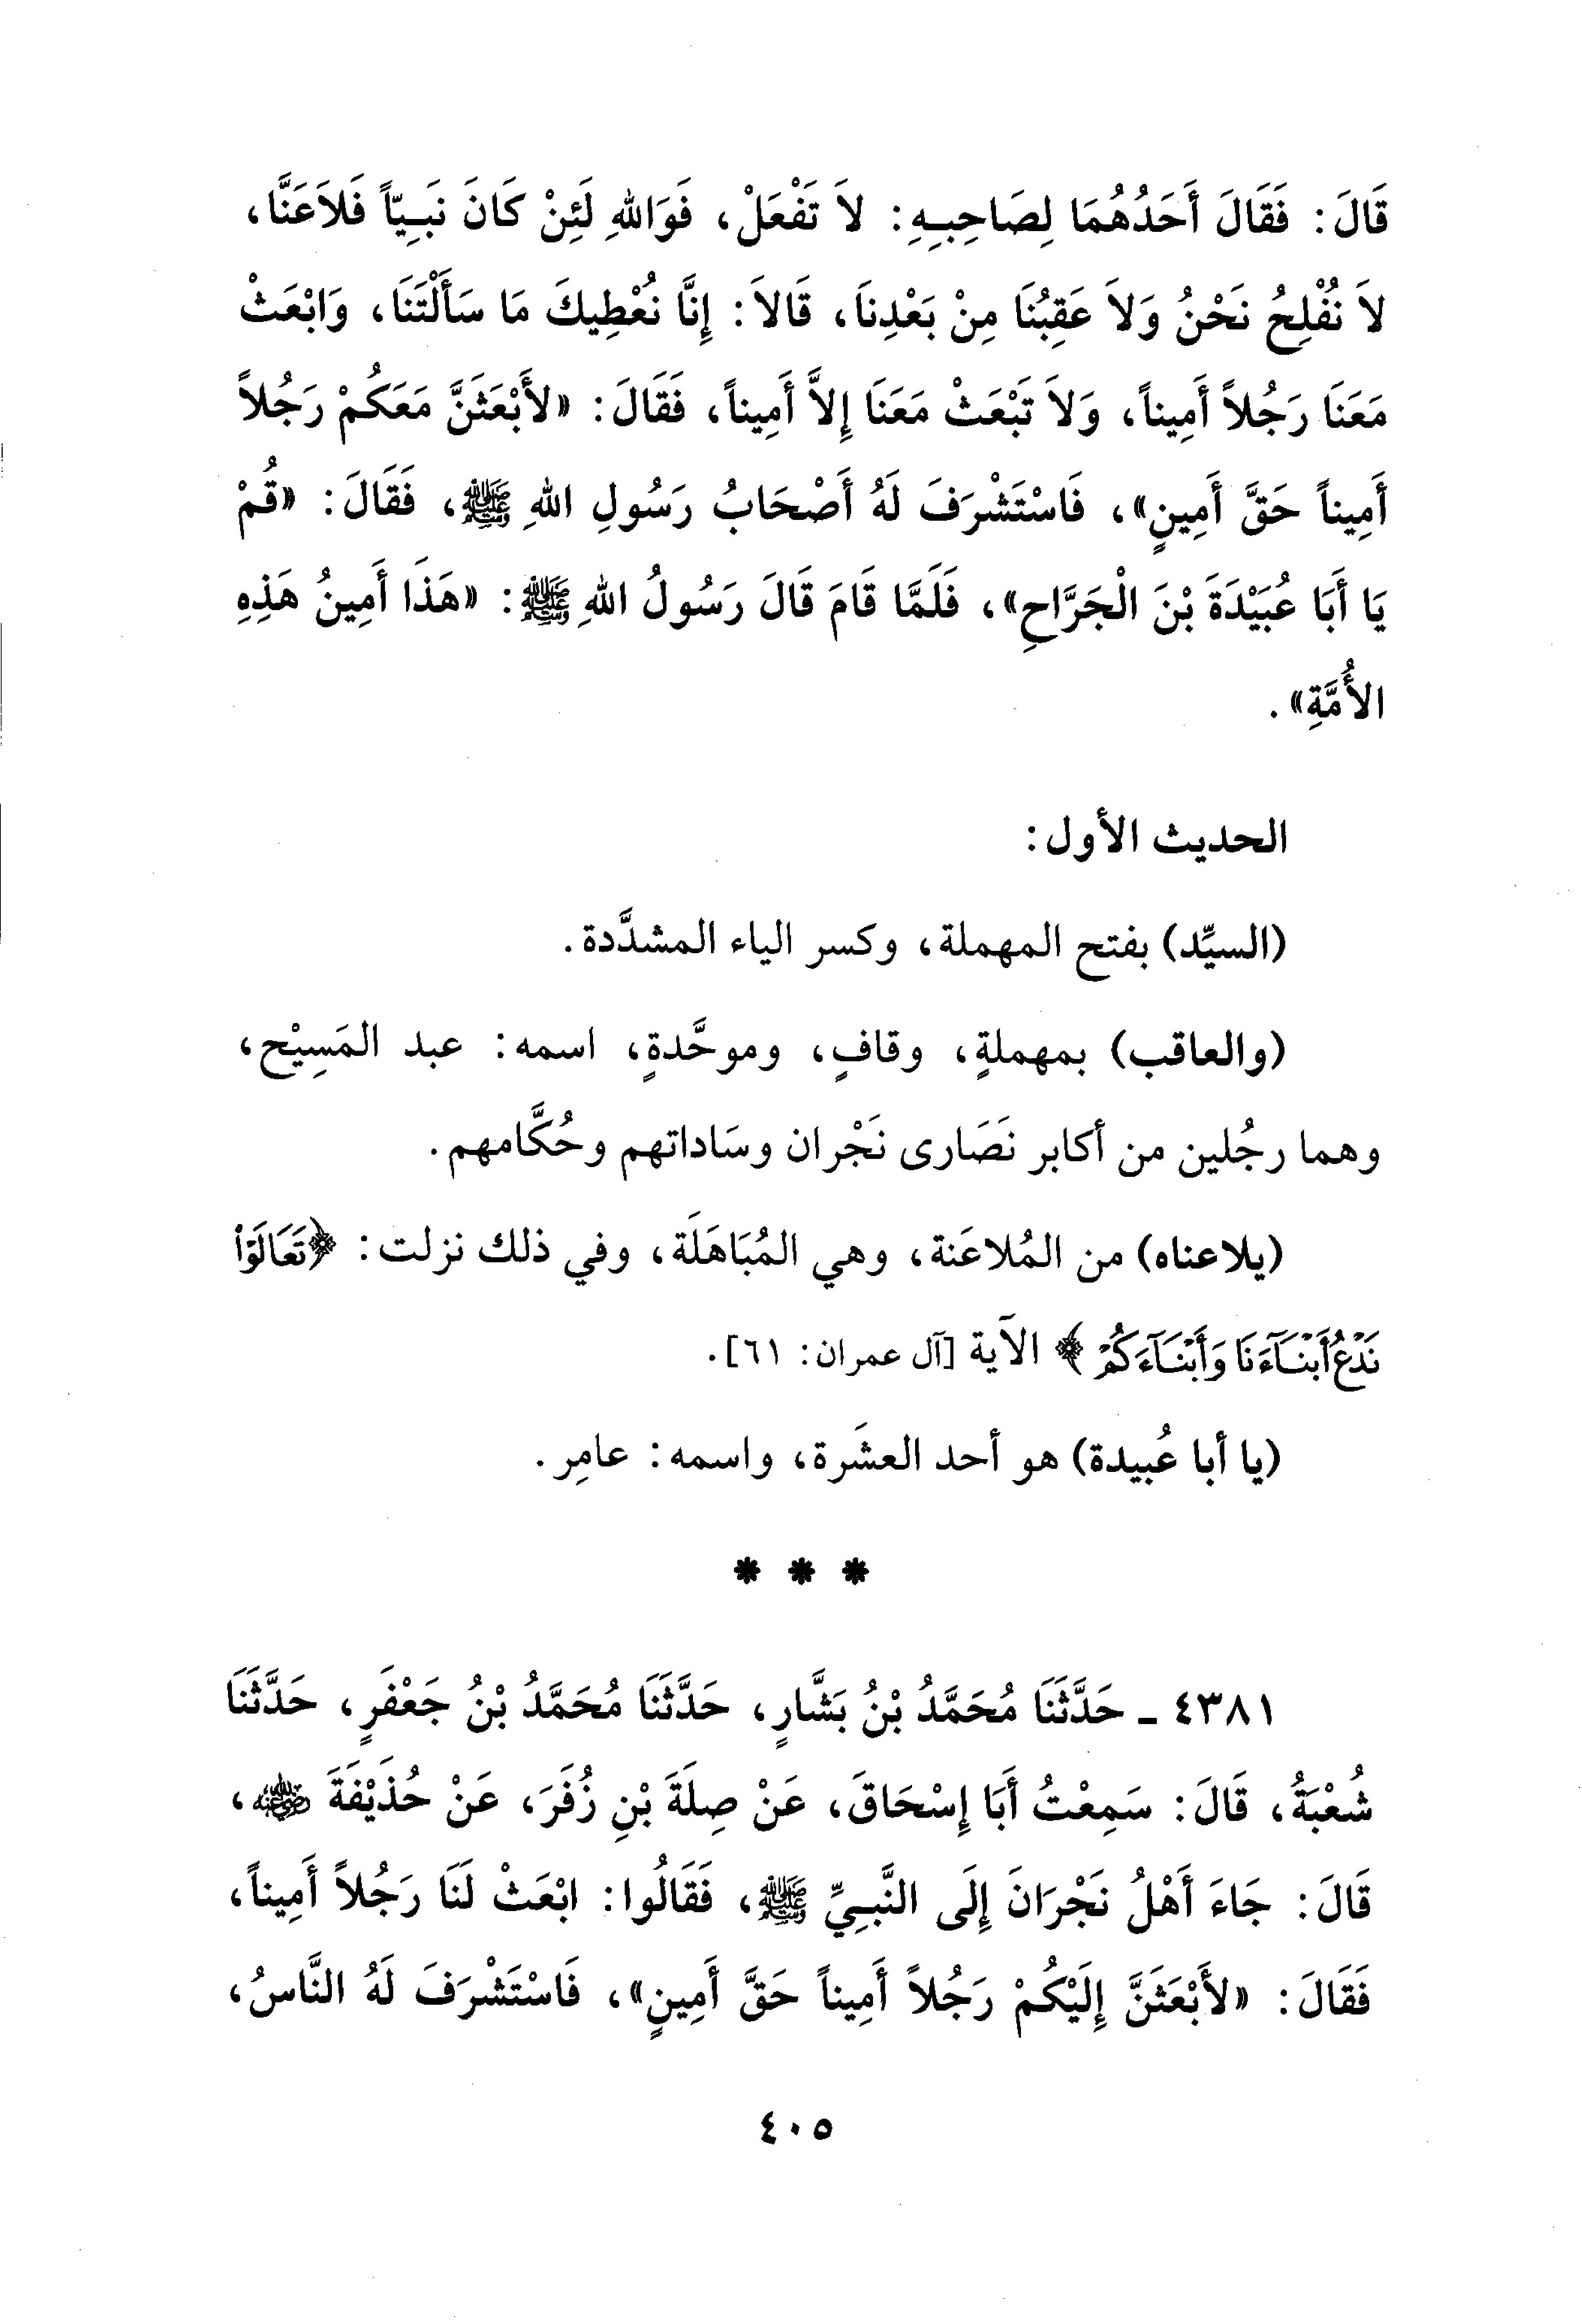 قَالَ: فَقَالَ أَحَدُهُمَا لِصَاحِبِهِ: لاَ تَفْعَلْ، فَوَاللهِ لَئِنْ كَانَ نَبِيّاً فَلاَعَنَّا،
لاَ نُفْلِحُ نَحْنُ وَلاَ عَقِبُنَا مِنْ بَعْدِنَا، قَالاَ: إِنَّا نُعْطِيكَ مَا سَأَلْتَنَا، وَابْعَثْ
مَعَنَا رَجُلاً أَمِيناً، وَلاَ تَبْعَثْ مَعَنَا إِلاَّ أَمِيناً، فَقَالَ: «لأَبْعَثَنَّ مَعَكُمْ رَجُلاً
أَمِيناً حَقَّ أَمِينٍ»، فَاسْتَشْرَفَ لَهُ أَصْحَابُ رَسُولِ اللهِ ﷺ، فَقَالَ: «قُمْ
يَا أَبَا عُبَيْدَةَ بْنَ الْجَرَّاحِ»، فَلَمَّا قَامَ قَالَ رَسُولُ اللهِ ﷺ: «هَذَا أَمِينُ هَذِهِ
الأُمَّةِ».
الحديث الأول:
(السيِّد) بفتح المهملة، وكسر الياء المشدَّدة.
(والعاقب) بمهملةٍ، وقافٍ، وموحَّدةٍ، اسمه: عبد المَسِيْح،
وهما رجُلين من أكابر نَصَارى نَجْران وسَاداتهم وحُكَّامهم.
(يلاعناه) من المُلاعَنة، وهي المُبَاهَلَة، وفي ذلك نزلت: ﴿تَعَالَوْا
نَدْعُ أَبْنَآءَنَا وَأَبْنَآءَكُمْ﴾ الآية [آل عمران: ٦١].
(يا أبا عُبيدة) هو أحد العشَرة، واسمه: عامِر.
* * *
٤٣٨١ ـ حَدَّثَنَا مُحَمَّدُ بْنُ بَشَّارٍ، حَدَّثَنَا مُحَمَّدُ بْنُ جَعْفَرٍ، حَدَّثَنَا
شُعْبَةُ، قَالَ: سَمِعْتُ أَبَا إِسْحَاقَ، عَنْ صِلَةَ بْنِ زُفَرَ، عَنْ حُذَيْفَةَ رضي الله عنه،
قَالَ: جَاءَ أَهْلُ نَجْرَانَ إِلَى النَّبِيِّ ﷺ، فَقَالُوا: ابْعَثْ لَنَا رَجُلاً أَمِيناً،
فَقَالَ: «لأَبْعَثَنَّ إِلَيْكُمْ رَجُلاً أَمِيناً حَقَّ أَمِينٍ»، فَاسْتَشْرَفَ لَهُ النَّاسُ،
٤٠٥